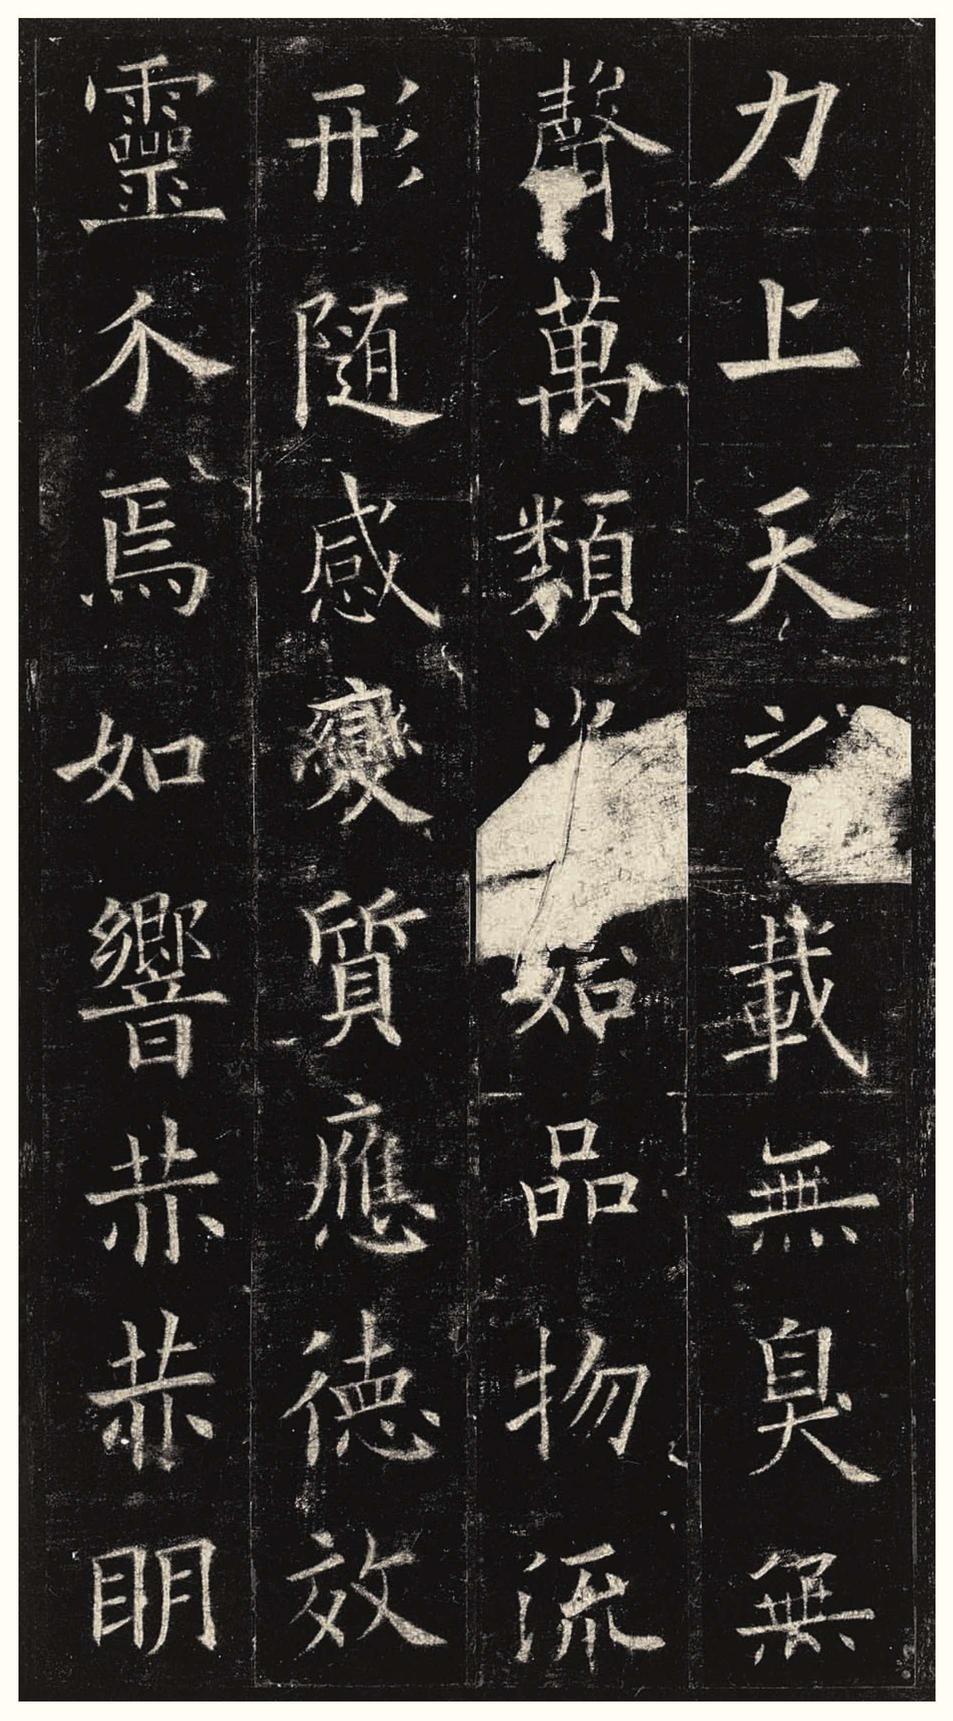 力上天之載無臭無
聲萬類始品物流
形隨感變質應德效
靈介焉如響赫赫明